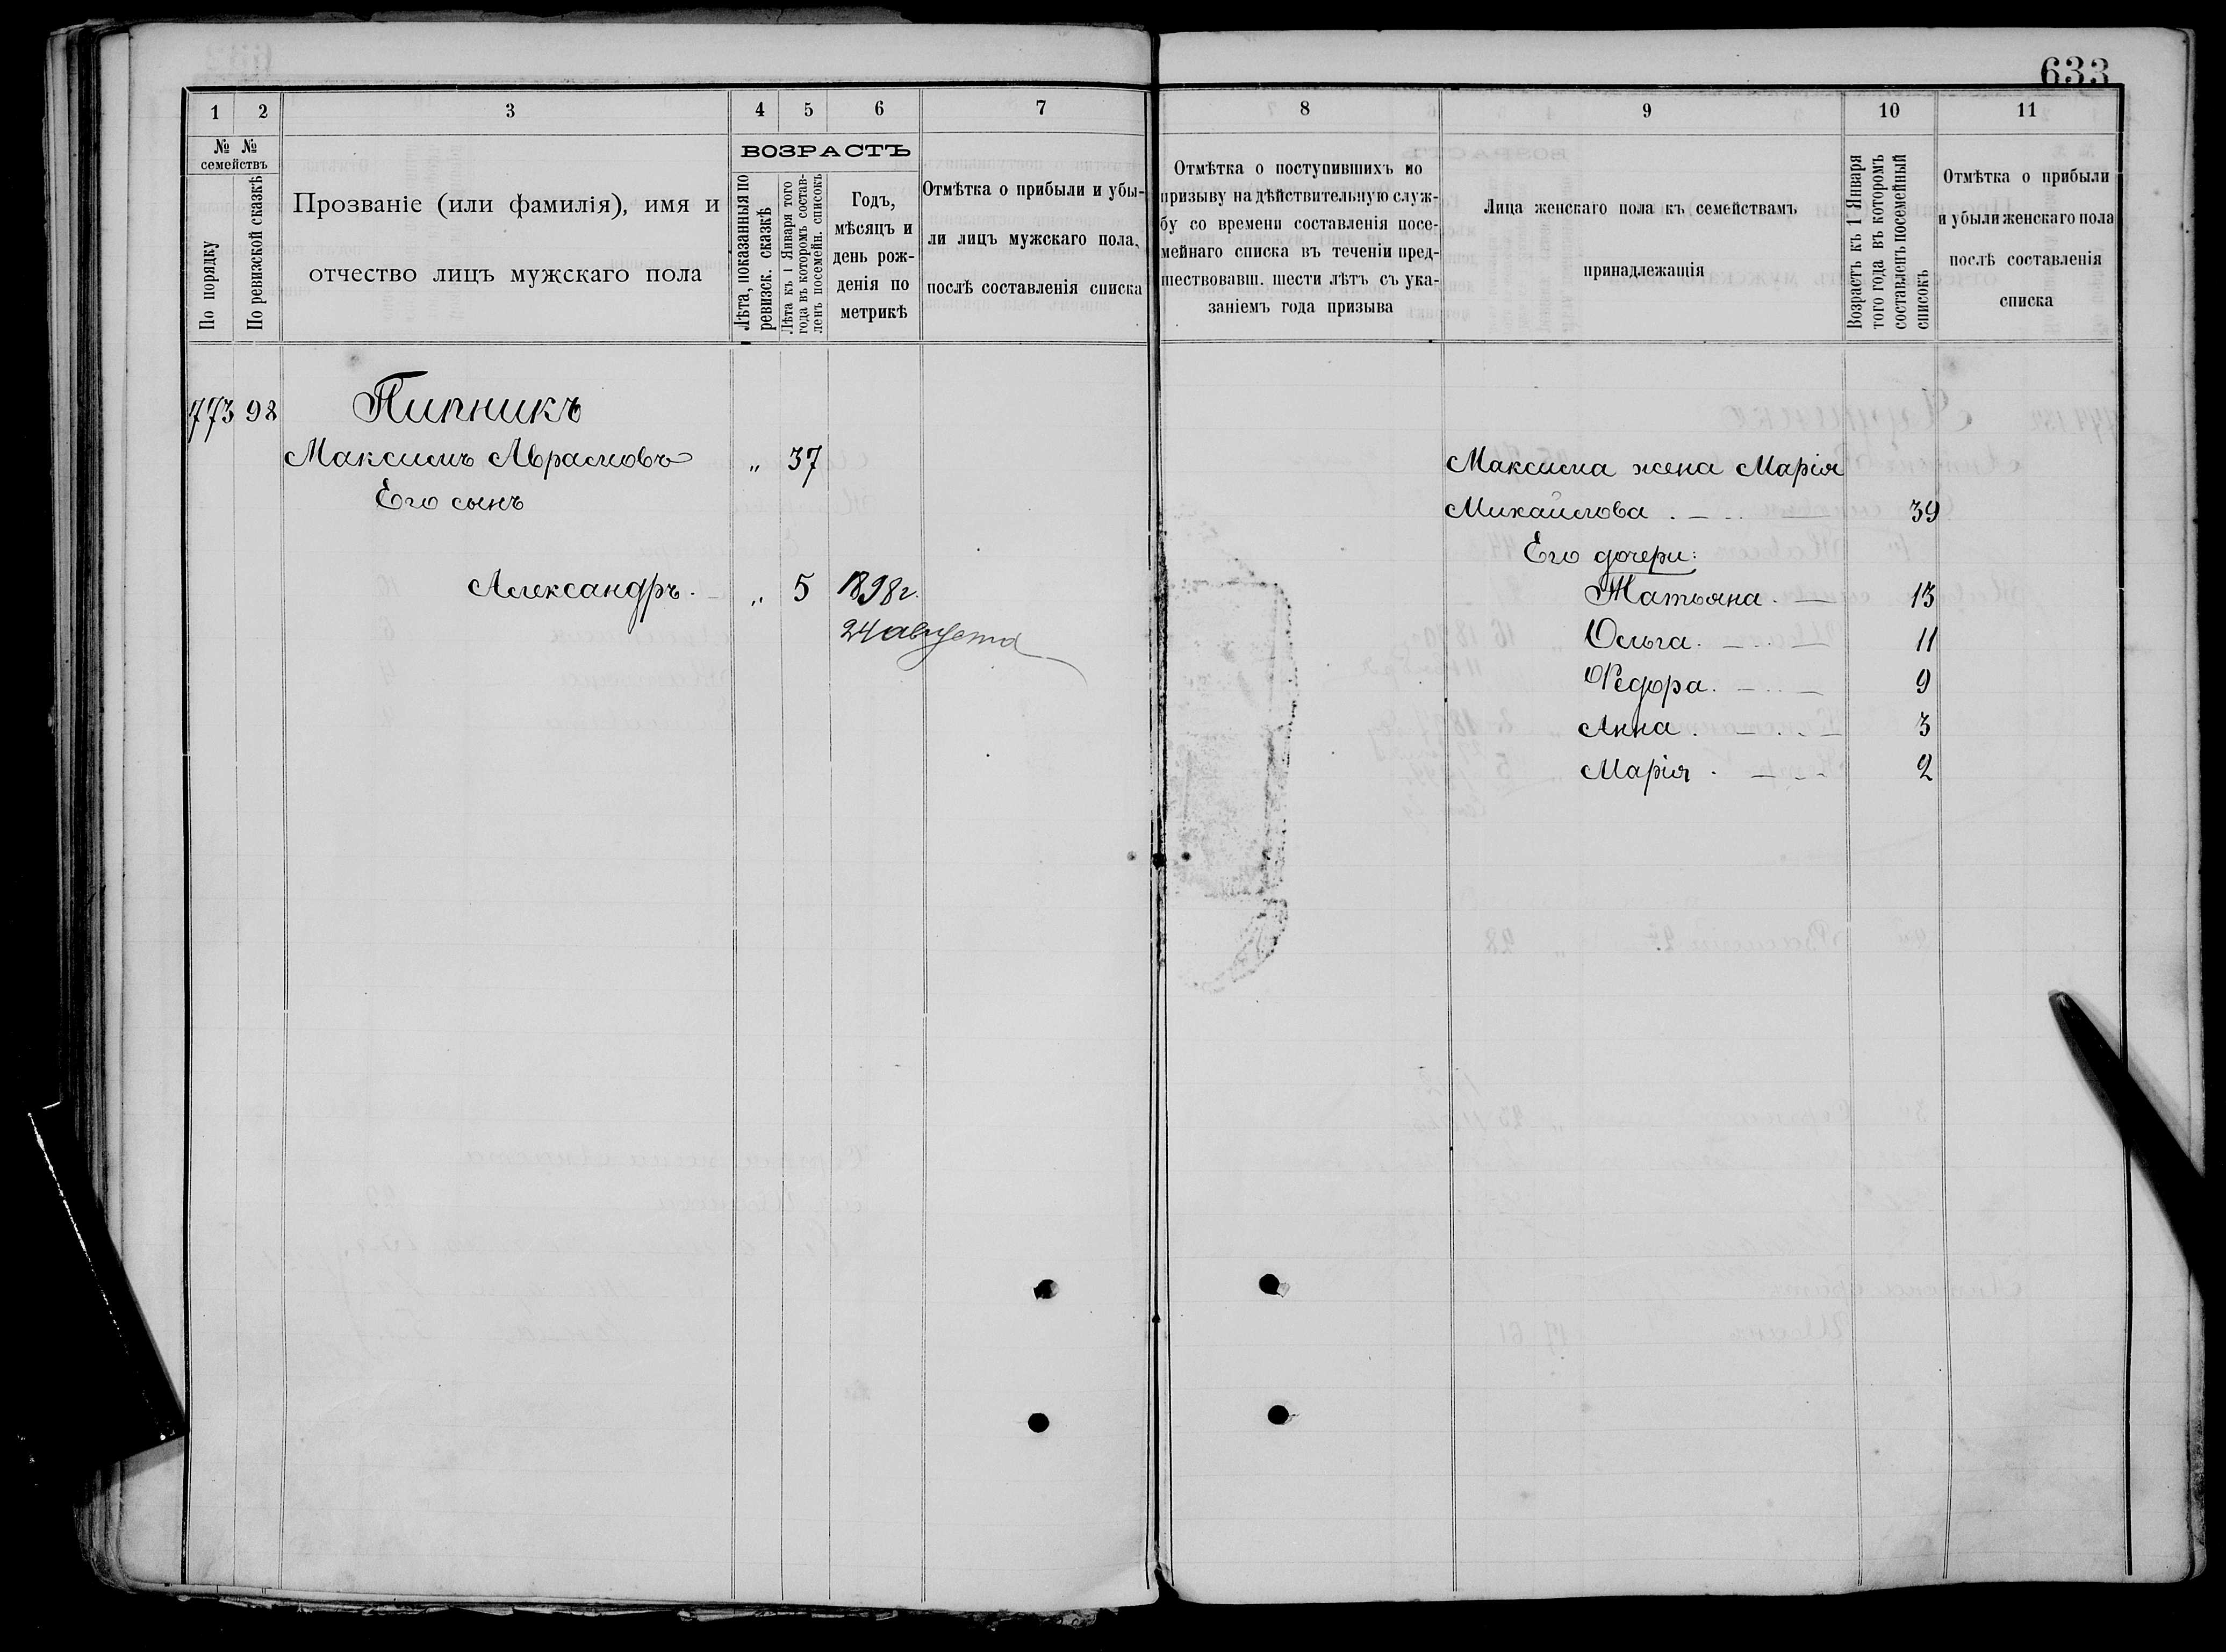 633
1 2 3 4 5 6 7 8 9 10 11
№ № семействъ
По порядку
По ревизской сказкѣ
Прозваніе (или фамилія), имя и
отчество лицъ мужскаго пола
ВОЗРАСТЪ
Лѣта, показанныя по
ревизск. сказкѣ
Лѣта къ 1 Января того
года въ которомъ состав-
ленъ посемейн. списокъ
Годъ,
мѣсяцъ и
день рож-
денія по
метрикѣ
Отмѣтка о прибыли и убы-
ли лицъ мужскаго пола,
послѣ составленія списка
Отмѣтка о поступившихъ по
призыву на дѣйствительную служ-
бу со времени составленія посе-
мейнаго списка въ теченіи пред-
шествовавш. шести лѣтъ съ ука-
заніемъ года призыва
Лица женскаго пола къ семействамъ
принадлежащія
Возрастъ къ 1 Января
того года въ которомъ
составленъ посемейный
списокъ
Отмѣтка о прибыли
и убыли женскаго пола
послѣ составленія
списка
773 98 Пипникъ
Максимъ Аврамовъ „ 37
Его сынъ
Александръ. „ 5 1898 г.
24 августа
Максима жена Марія
Михайлова 39
Его дочери:
Татьяна 13
Ольга 11
Федора 9
Анна 3
Марія 2